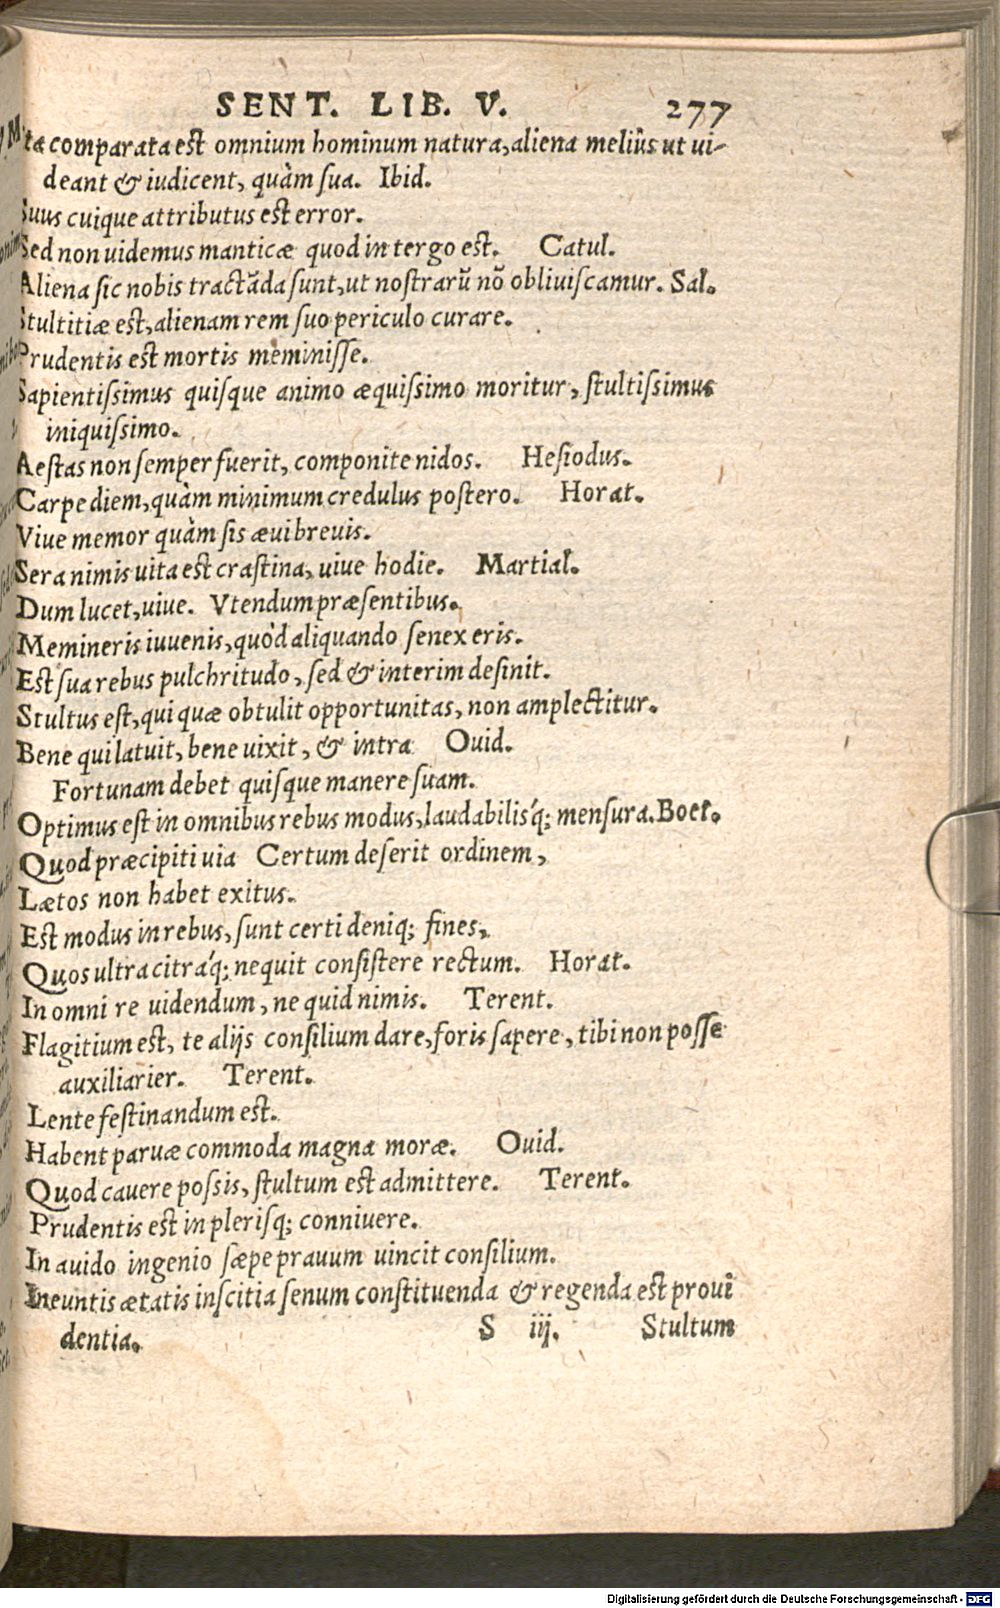 SENT. LIB. V. 277
ta comparata est omnium hominum natura, aliena meliùs ut ui-
deant & iudicent, quàm sua. Ibid.
Suus cuique attributus est error.
Sed non uidemus manticæ quod in tergo est. Catul.
Aliena sic nobis tractāda sunt, ut nostrarū nō obliuiscamur. Sal.
Stultitiæ est, alienam rem suo periculo curare.
Prudentis est mortis meminisse.
Sapientissimus quisque animo æquissimo moritur, stultissimus
iniquissimo.
Aestas non semper fuerit, componite nidos. Hesiodus.
Carpe diem, quàm minimum credulus postero. Horat.
Viue memor quàm sis æui breuis.
Sera nimis uita est crastina, uiue hodie. Martial.
Dum lucet, uiue. Vtendum præsentibus.
Memineris iuuenis, quòd aliquando senex eris.
Est sua rebus pulchritudo, sed & interim desinit.
Stultus est, qui quæ obtulit opportunitas, non amplectitur.
Bene qui latuit, bene uixit, & intra Ouid.
Fortunam debet quisque manere suam.
Optimus est in omnibus rebus modus, laudabilisq́; mensura. Boet.
Quod præcipiti uia Certum deserit ordinem,
Lætos non habet exitus.
Est modus in rebus, sunt certi deniq; fines,
Quos ultra citráq; nequit consistere rectum. Horat.
In omni re uidendum, ne quid nimis. Terent.
Flagitium est, te alijs consilium dare, foris sapere, tibi non posse
auxiliarier. Terent.
Lente festinandum est.
Habent paruæ commoda magna moræ. Ouid.
Quod cauere possis, stultum est admittere. Terent.
Prudentis est in plerisq; conniuere.
In auido ingenio sæpe prauum uincit consilium.
Ineuntis ætatis inscitia senum constituenda & regenda est proui
dentia. S iij. Stultum
Digitalisierung gefördert durch die Deutsche Forschungsgemeinschaft - DFG